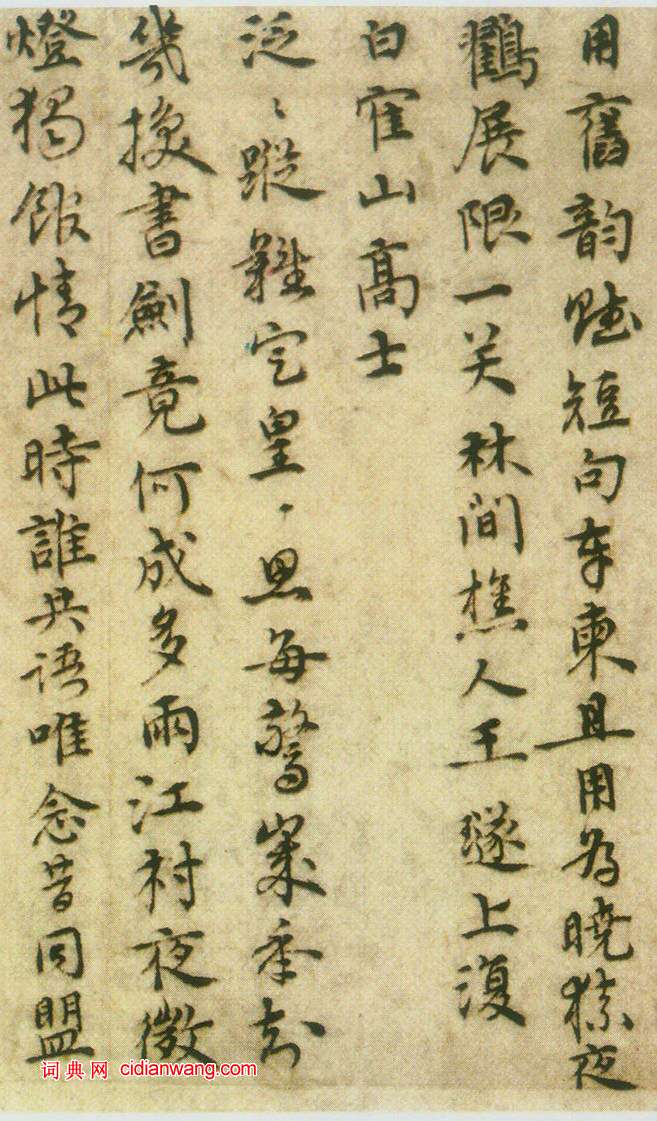 用舊韵賦短句奉柬且用為曉猿夜
鶴展限一笑林間樵人王璲上復
白寉山高士
泛〻蹤難定皇〻思每驚歲年知
幾換書劍竟何成多雨江村夜微
燈獨館情此時誰共語唯念昔同盟
词典网 cidianwang.com